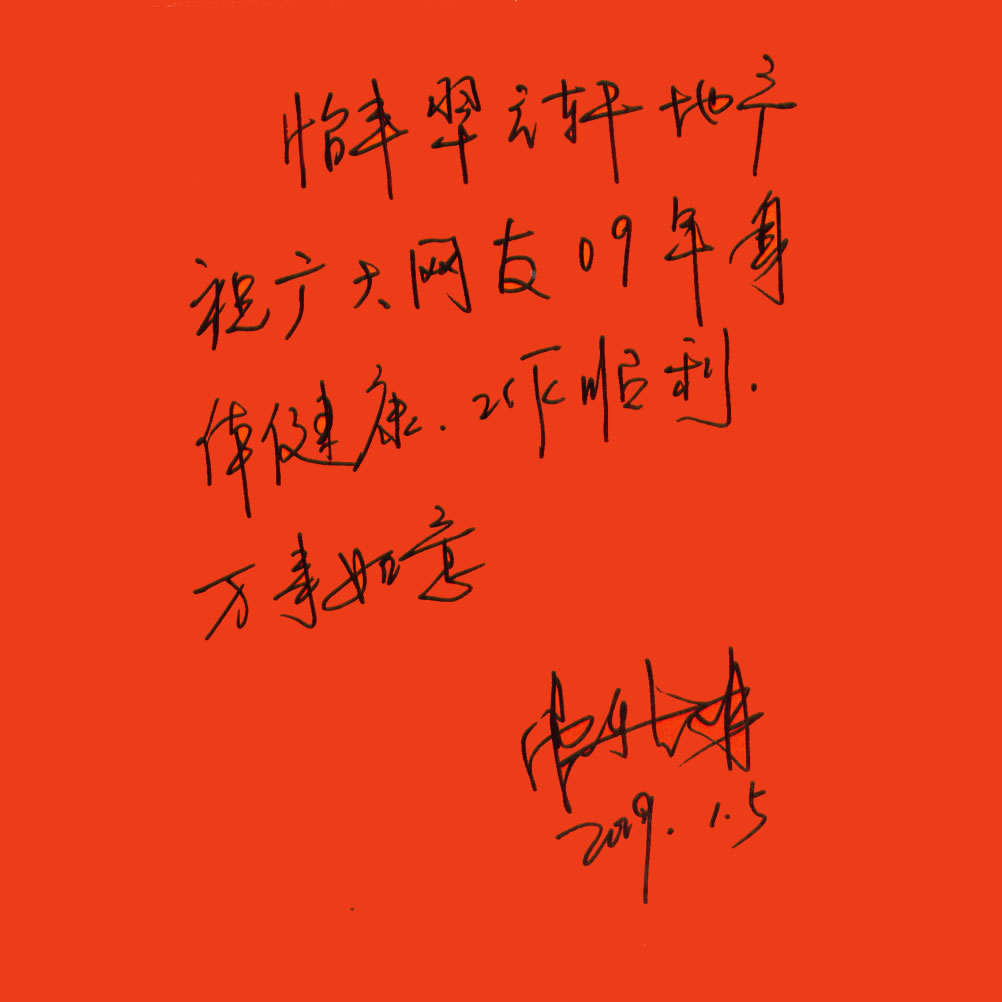 怡丰翠云轩地产
祝广大网友09年身
体健康.工作顺利.
万事如意
2009.1.5